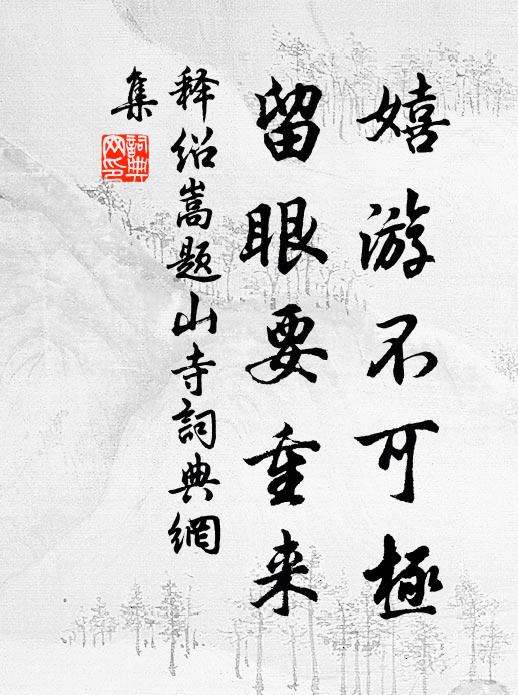 嬉游不可極
留眼要重来
释绍嵩题山寺詞典網
集
詞典
网印